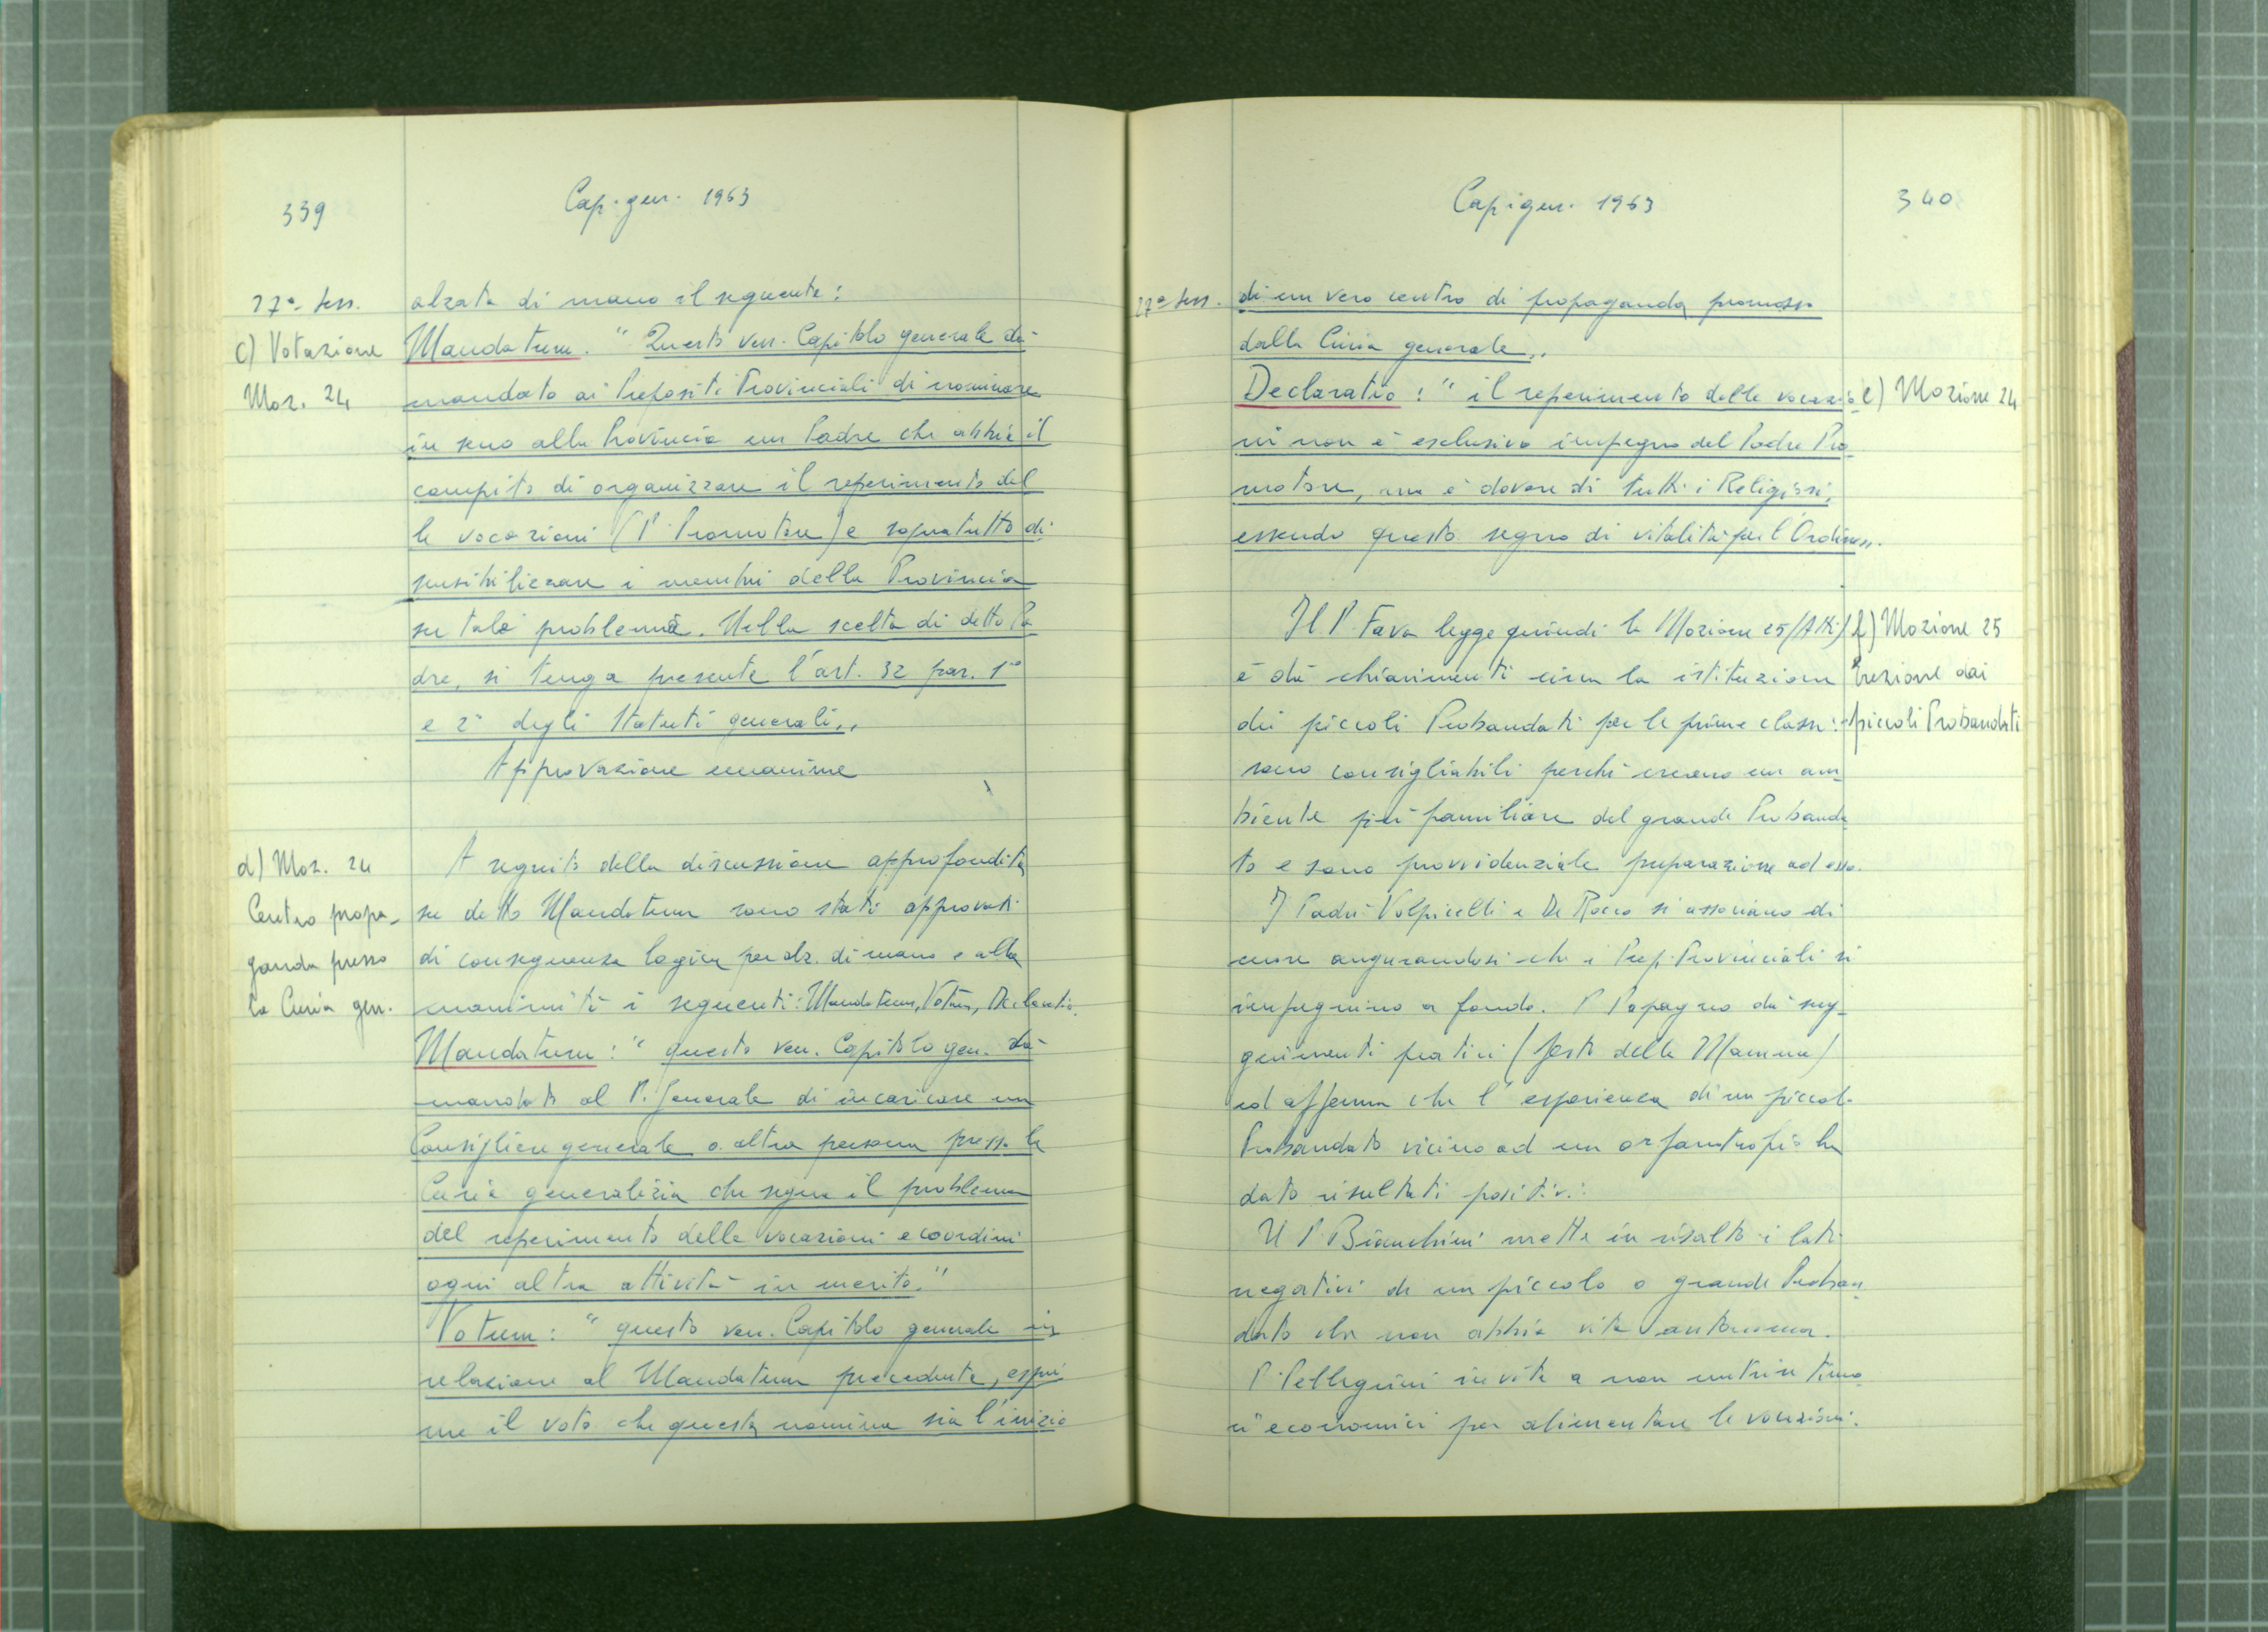 339
Cap. gen. 1963
27ª Sess.
c) Votazione
Moz. 24
alzata di mano il seguente:
Mandatum. "Questo ven. Capitolo generale dà
mandato ai Prepositi Provinciali di nominare
in seno alla Provincia un Padre che abbia il
compito di organizzare il reperimento del
le vocazioni (P. Promotore) e sopratutto di
sensibilizzare i membri della Provincia
su tale problema. Nella scelta di detto Pa
dre, si tenga presente l'art. 32 par. 1º
e 2º degli Statuti generali"
Approvazione unanime
d) Moz. 24
Centro propa-
ganda presso
la Curia gen.
A seguito della discussione approfondita
su detto Mandatum sono stati approvati
di conseguenza logica per alz. di mano e alla
unanimità i seguenti: Mandatum, Votum, Declaratio.
Mandatum: "questo ven. Capitolo gen. dà
mandato al P. Generale di incaricare un
Consigliere generale o altra persona presso la
Curia generalizia che segua il problema
del reperimento delle vocazioni e coordini
ogni altra attività in merito."
Votum: "questo ven. Capitolo generale in
relazione al Mandatum precedente, espri
me il voto che questa nomina sia l'inizio
Cap. gen. 1963
340
27ª Sess.
di un vero centro di propaganda promosso
dalla Curia generale"
Declaratio: "il reperimento delle vocazio
ni non è esclusivo impegno del Padre Pro
motore, ma è dovere di tutti i Religiosi,
essendo questo segno di vitalità per l'Ordine".
e) Mozione 24
Il P. Fava legge quindi la Mozione 25 (Atti)
e dà chiarimenti circa la istituzione
dei piccoli Probandati per le prime classi:
sono consigliabili perchè creano un am-
biente più familiare del grande Probanda
to e sono provvidenziale preparazione ad esso.
f) Mozione 25
Erezione dei
piccoli Probandati
I Padri Volpicelli e De Rocco si associano di
cuore augurandosi che i Prep. Provinciali si
impegnino a fondo. P. Papagno dà sug-
gerimenti pratici (festa della Mamma)
ed afferma che l'esperienza di un piccolo
Probandato vicino ad un orfanotrofio ha
dato risultati positivi.
Il P. Bianchini mette in risalto i lati
negativi di un piccolo o grande Proban-
dato che non abbia vita autonoma.
P. Pellegrini invita a non nutrire timo
ri economici per alimentare le vocazioni.